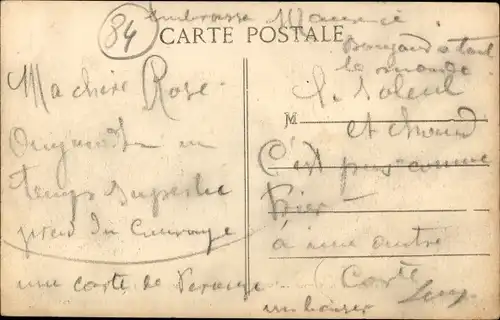 84
embrasse Maurice
CARTE POSTALE
Bonjour a tout
le monde
Ma chère Rose
un
temps superbe
prend du courage
une carte de
le soleil
M
et chaud
C'est pas comme
hier
à une autre
Carte
un baiser